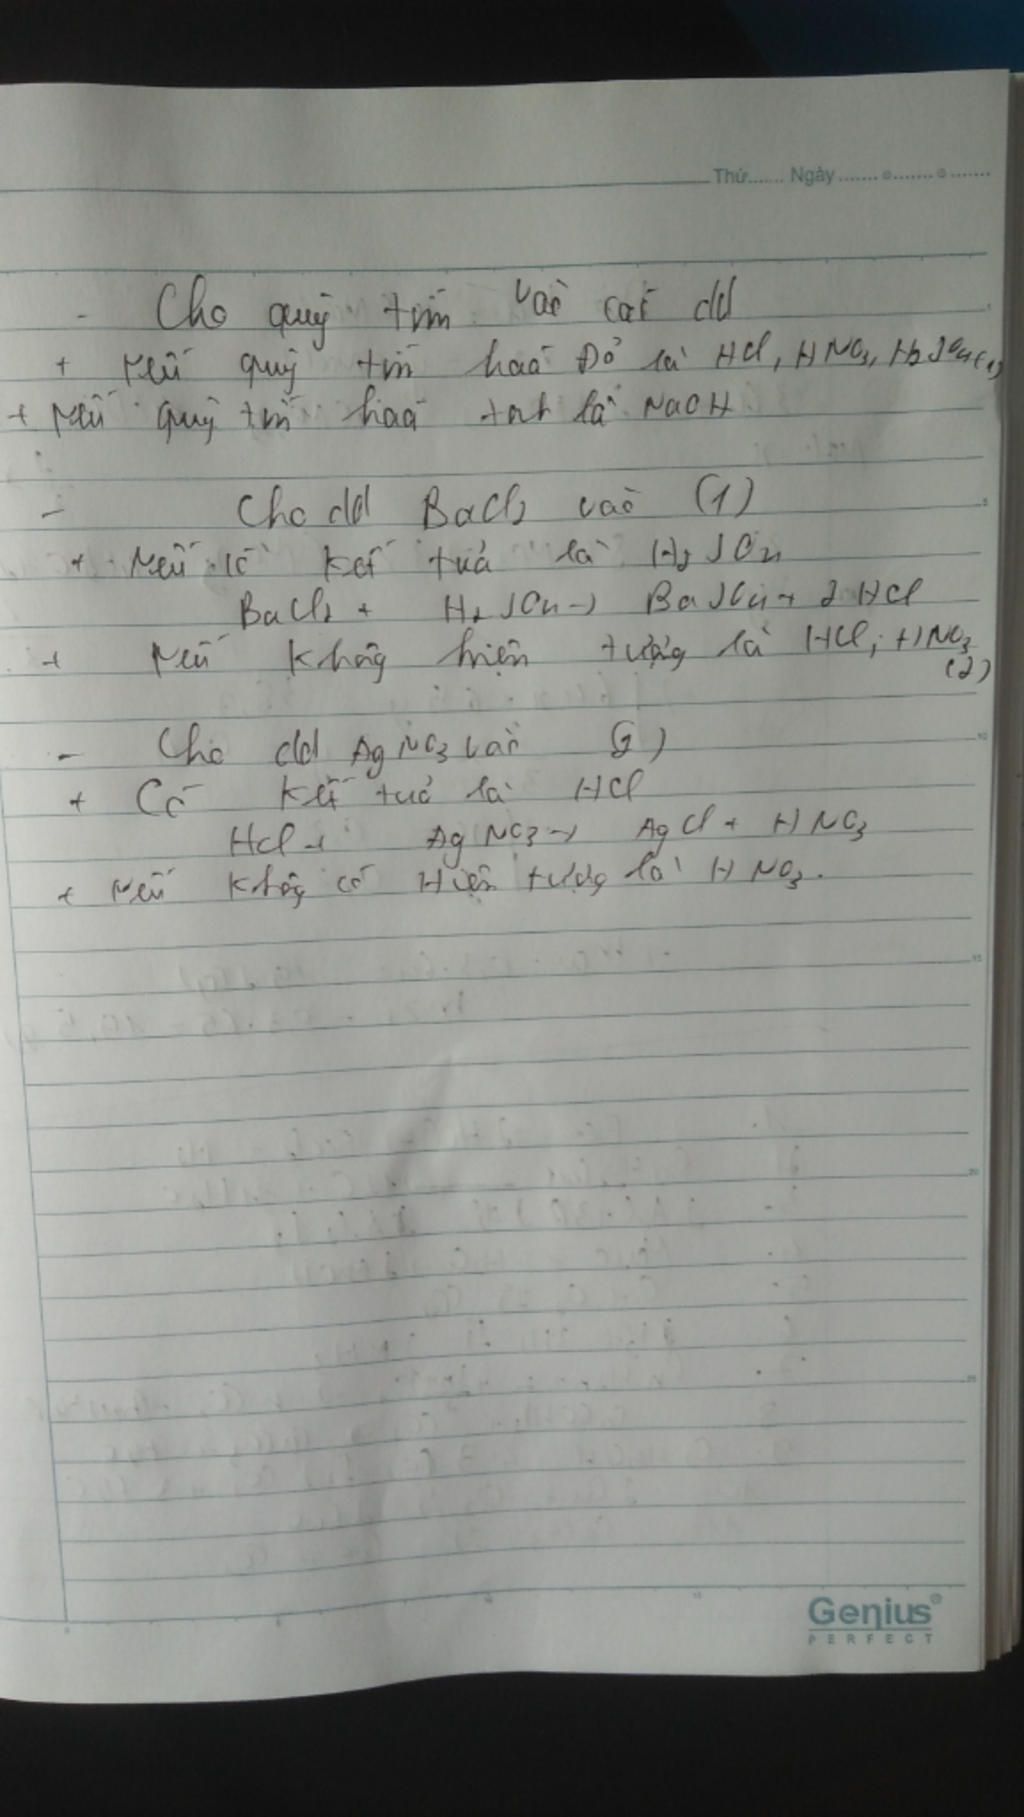 Thứ....... Ngày
- Cho quỳ tím vào các dd
+ Nếu quỳ tím hoá Đỏ là HCl, HNO3, H2SO4 (1)
+ Nếu quỳ tím hoá xanh là NaOH
- Cho dd BaCl2 vào (1)
+ Nếu có kết tủa là H2SO4
BaCl2 + H2SO4 → BaSO4 + 2HCl
+ Nếu không hiện tượng là HCl, HNO3
(2)
- Cho dd AgNO3 vào (2)
+ Có kết tủa là HCl
HCl + AgNO3 → AgCl + HNO3
+ Nếu không có Hiện tượng là HNO3.
Genius
PERFECT